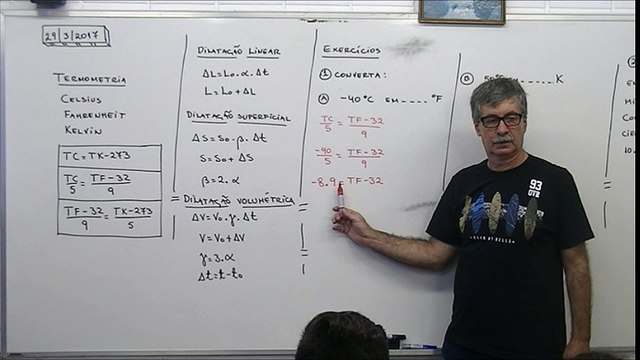 29/3/2017
TERMOMETRIA
CELSIUS
FAHRENHEIT
KELVIN
TC=TK-273
TC/5 = TF-32/9
TF-32/9 = TK-273/5
DILATAÇÃO LINEAR
ΔL=L₀.α.Δt
L=L₀+ΔL
DILATAÇÃO SUPERFICIAL
ΔS=S₀.β.Δt
S=S₀+ΔS
β=2.α
DILATAÇÃO VOLUMÉTRICA
ΔV=V₀.γ.Δt
V=V₀+ΔV
γ=3.α
Δt=t-t₀
EXERCÍCIOS
① CONVERTA:
Ⓐ -40°C EM ---- °F
TC/5 = TF-32/9
-40/5 = TF-32/9
-8.9=TF-32
Ⓑ K
93